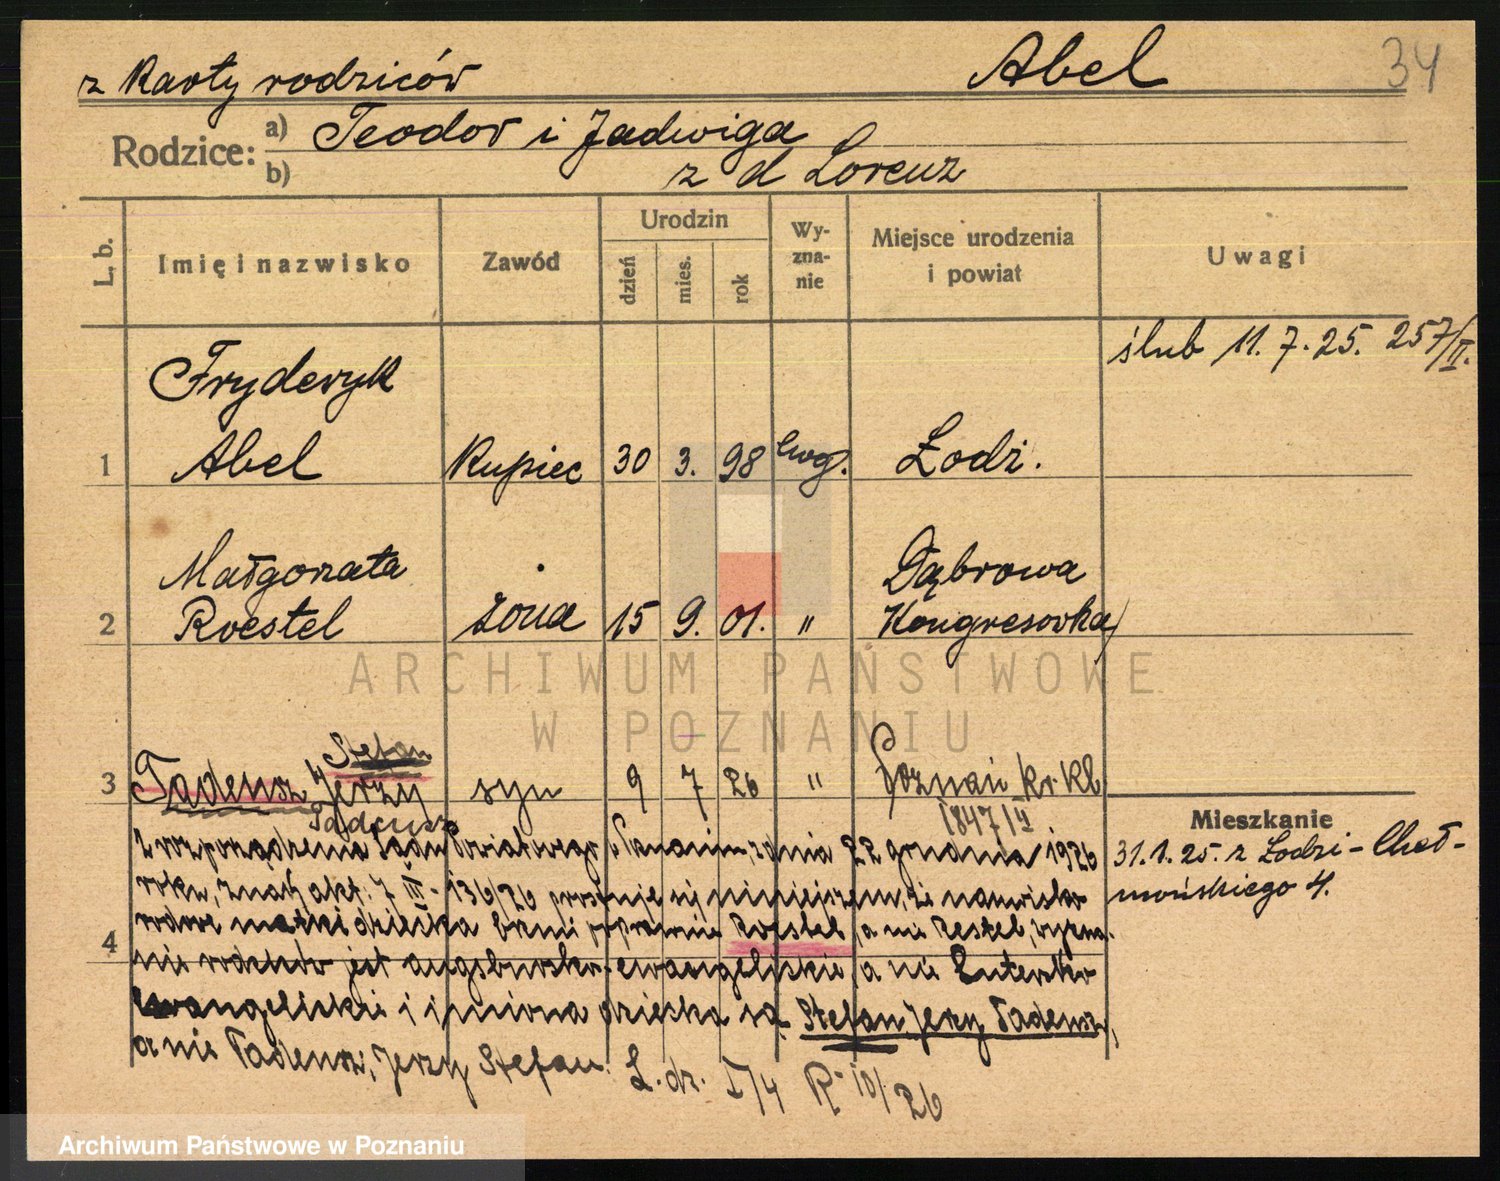 z Karty rodziców
Abel
34
Rodzice:
a) Teodor i Jadwiga
b) z d Lorenz
L. b.
Imię i nazwisko
Zawód
Urodzin
dzień
mies.
rok
Wy-
zna-
nie
Miejsce urodzenia
i powiat
Uwagi
ślub 11. 7. 25. 257/II.
Fryderyk
1 Abel Kupiec 30 3. 98 ewg. Łodź.
Małgorzata Dąbrowa
2 Roestel żona 15 9. 01. " Kongresówka
ARCHIWUM PAŃSTWOWE
W POZNANIU
Stefan
3 Tadeusz Jerzy syn 9 7 26 " Poznań kr. Kl
Tadeusz
1847/II
Mieszkanie
31. 1. 25. z Łodzi - Cheł-
mońskiego 4.
Z rozporządzenia Sądu Powiatowego w Poznaniu, z dnia 22 grudnia 1926
roku, znak akt. 7 III - 136/26 prostuje się niniejszem, że nazwisko
rodowe matki dziecka brzmi poprawnie Roestel, a nie Restel, wyzna-
4
nie rodziców jest augsbursko-ewangelickie, a nie Lutersko
Ewangelickie i imiona dziecka są Stefan Jerzy Tadeusz,
a nie Tadeusz, Jerzy Stefan. L. dz. I/4 R 10/26
Archiwum Państwowe w Poznaniu